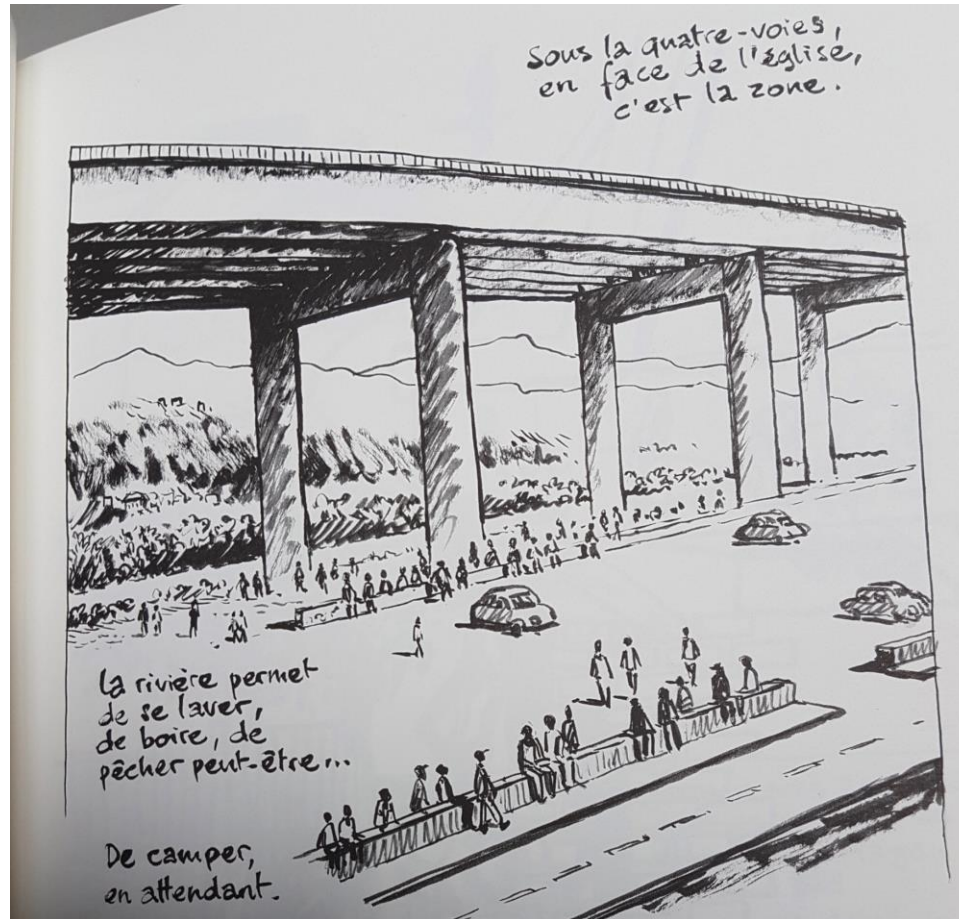 Sous la quatre-voies,
en face de l'église,
c'est la zone.
La rivière permet
de se laver,
de boire, de
pêcher peut-être...
De camper,
en attendant.